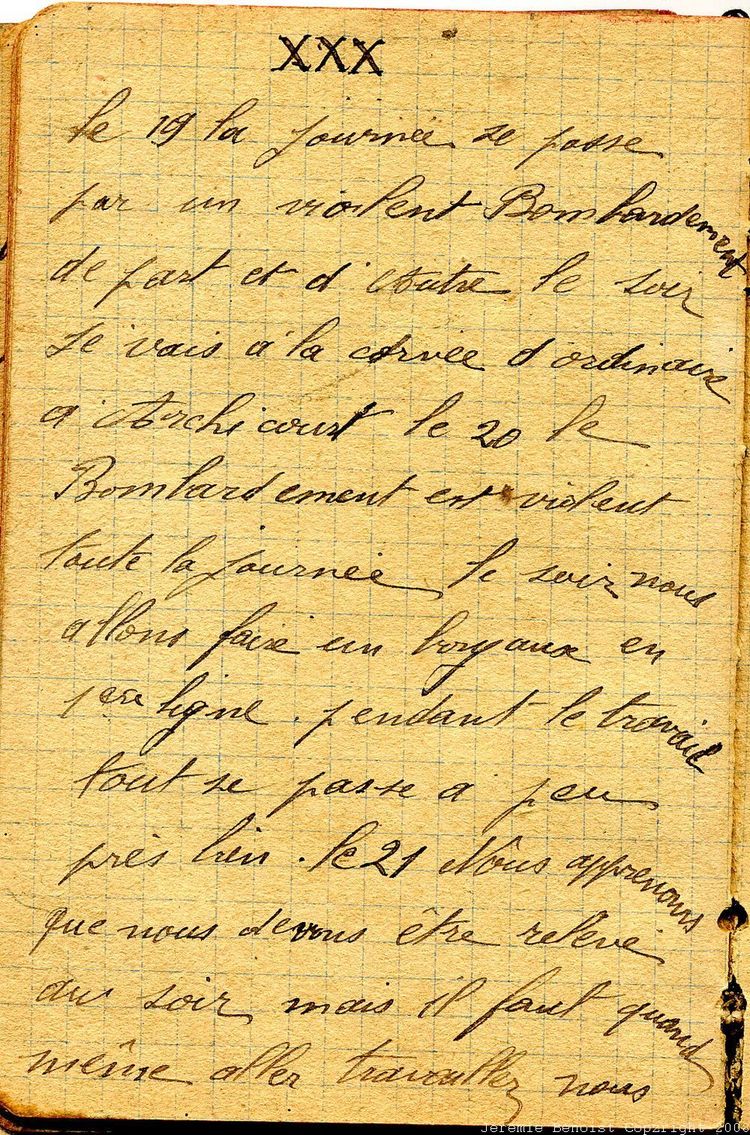 XXX
Le 19 la journée se passe
par un violent Bombardement
de part et d'Autre le soir
Je vais à la corvée d'ordinaire
a Archicourt le 20 le
Bombardement est violent
toute la journée le soir nous
allons faire un boyaux en
1ere ligne. pendant le travail
tout se passe a peu
près bien. le 21 Nous apprenons
que nous devons être relevé
au soir mais il faut quand
même aller travailler nous
Jeremie Benoist Copyright